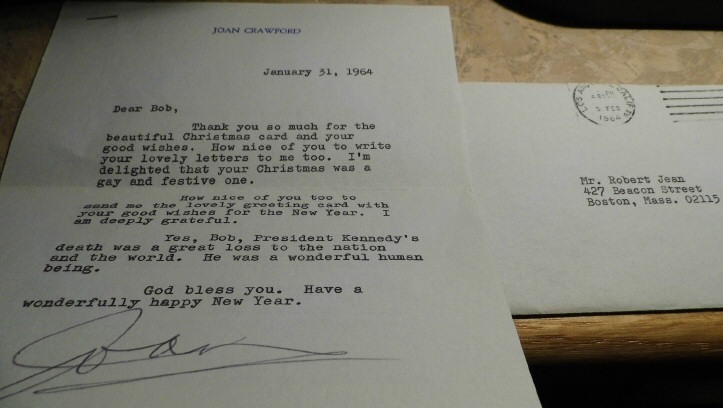 JOAN CRAWFORD
January 31, 1964
Dear Bob,
Thank you so much for the
beautiful Christmas card and your
good wishes. How nice of you to write
your lovely letters to me too. I'm
delighted that your Christmas was a
gay and festive one.
How nice of you too to
send me the lovely greeting card with
your good wishes for the New Year. I
am deeply grateful.
Yes, Bob, President Kennedy's
death was a great loss to the nation
and the world. He was a wonderful human
being.
God bless you. Have a
wonderfully happy New Year.
Joan
LOS CALIF
FEB
1964
Mr. Robert Jean
427 Beacon Street
Boston, Mass. 02115